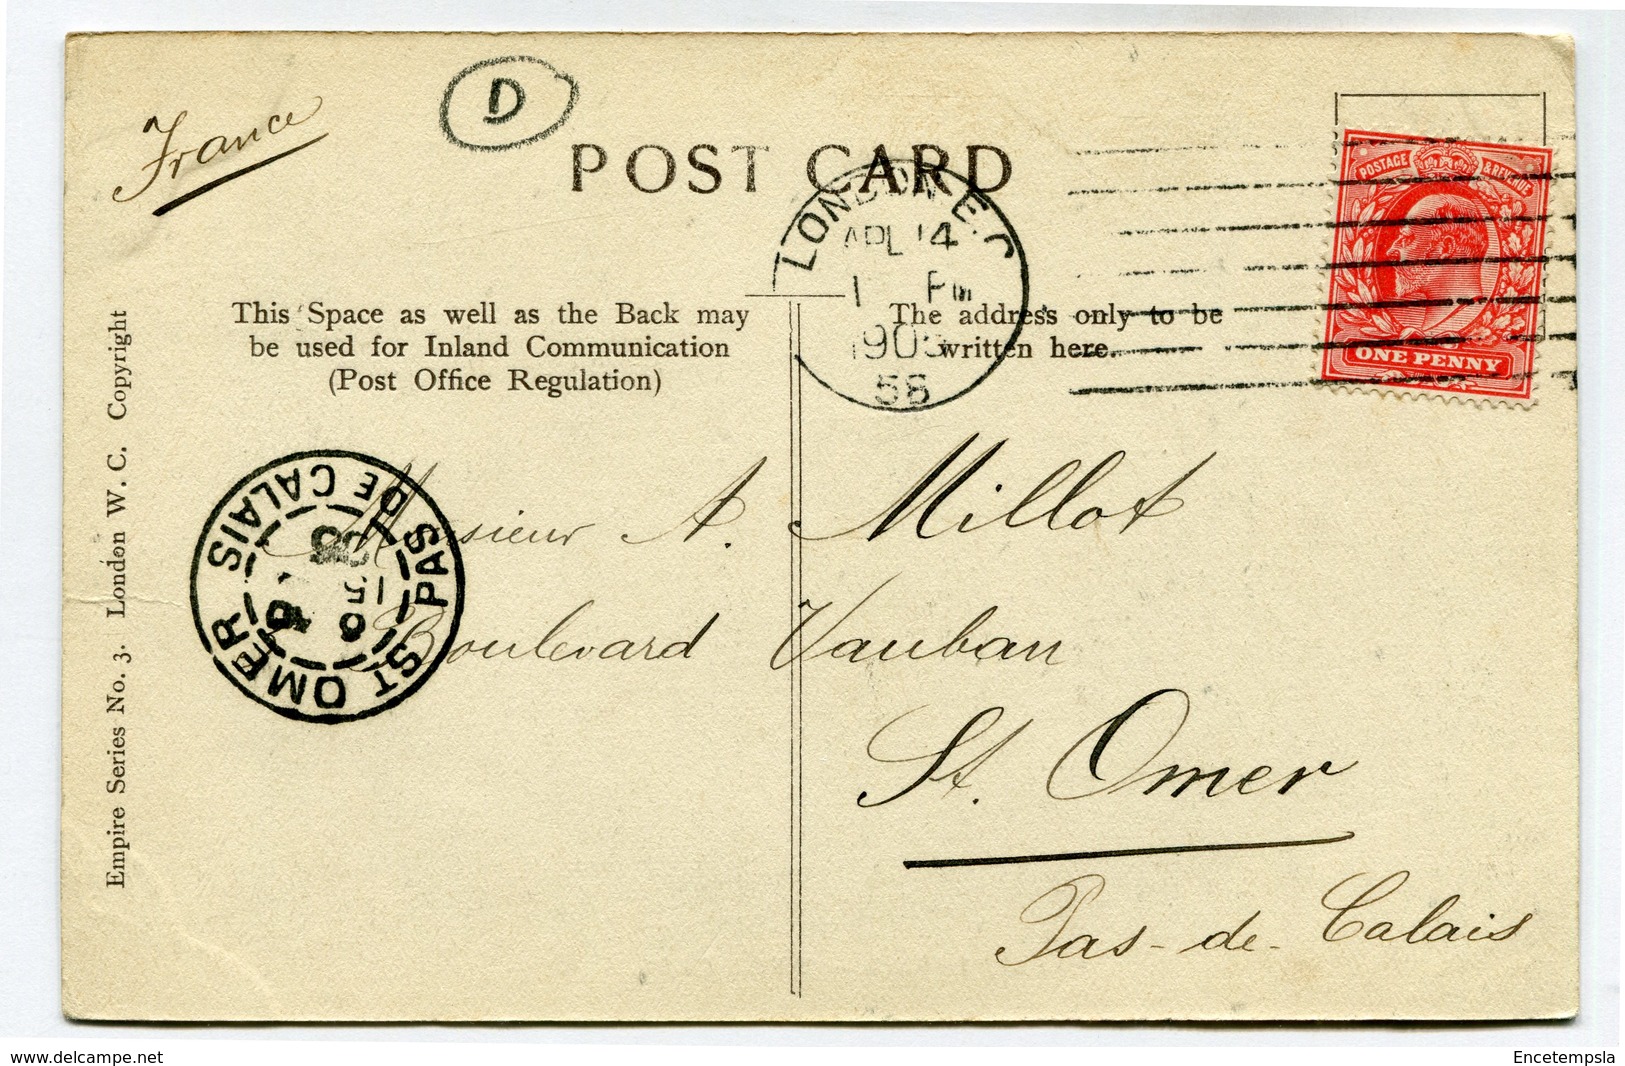 France
D
POST CARD
LONDON E.C
APL 14
1 PM
190
58
POSTAGE & REVENUE
ONE PENNY
This Space as well as the Back may
be used for Inland Communication
(Post Office Regulation)
The address only to be
written here.
Empire Series No. 3. London W. C. Copyright
ST OMER
PAS DE CALAIS
Monsieur A. Millot
Boulevard Vauban
St. Omer
Pas-de-Calais
www.delcampe.net
Encetempsla